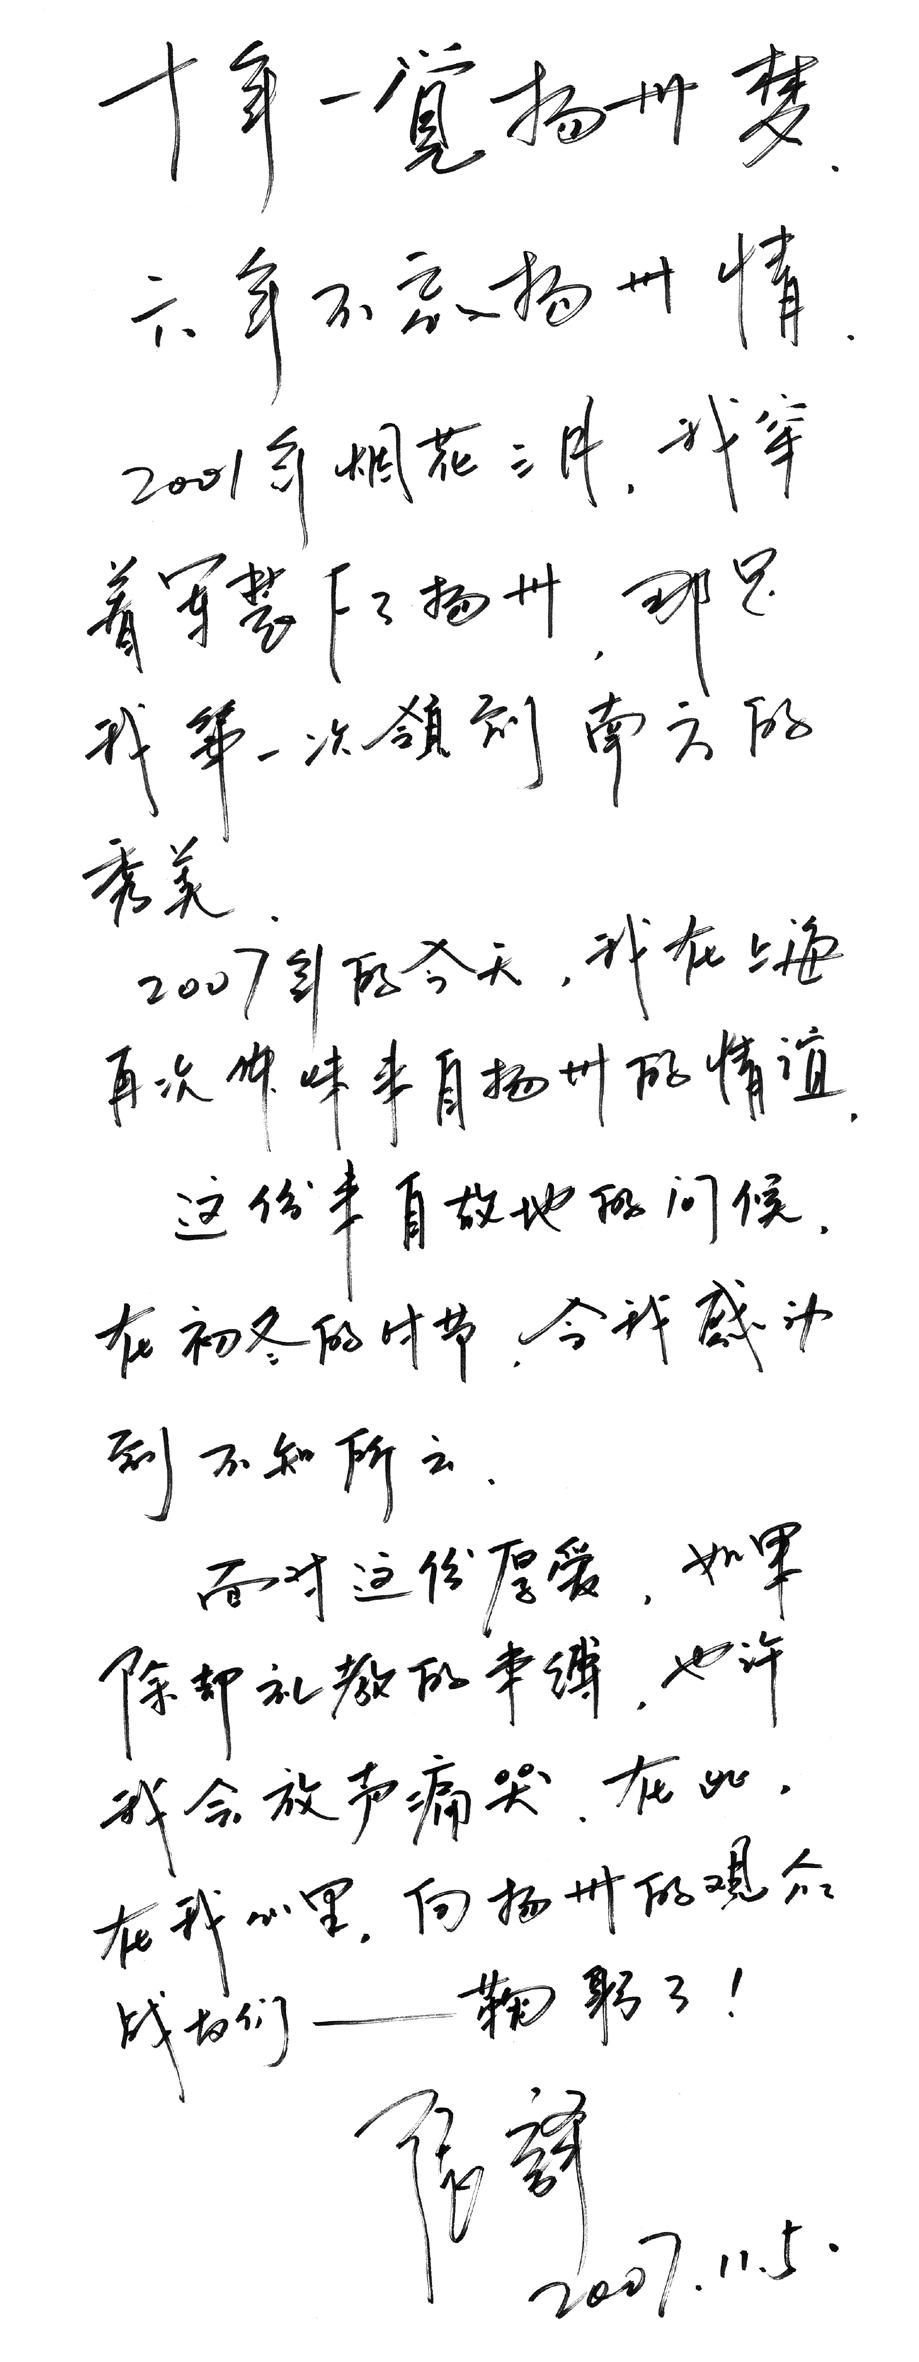 十年一覺扬州梦.
六年不忘扬州情.
2001年烟花三月，我穿
着军装下了扬州，那是
我第一次领到南方的
秀美.
2007年的今天，我在上海
再次体味来自扬州的情谊，
这份来自故地的问候，
在初冬的时节，令我感动
到不知所云.
面对这份厚爱，如果
除却礼教的束缚，也许
我会放声痛哭. 在此，
在我心里，向扬州的观众
战友们——鞠躬了！
张譯
2007.11.5.